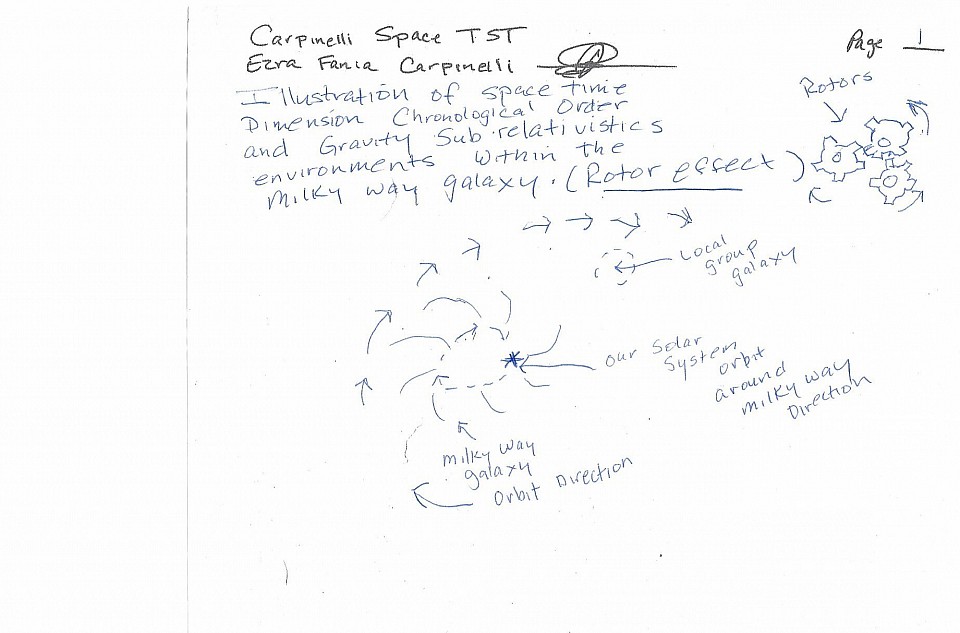 Carpinelli Space TST
Ezra Fania Carpinelli
Page 1
Illustration of space time
Dimension Chronological Order
and Gravity Sub-relativistics
environments within the
milky way galaxy. (Rotor effect)
Rotors
Local
group
galaxy
our Solar
System
orbit
around
milky way
Direction
milky way
galaxy
Orbit Direction